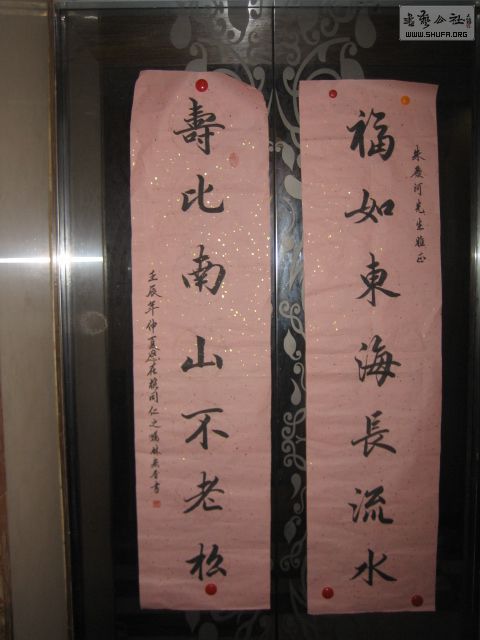 福如東海長流水
先生雅正
壽比南山不老松
壬辰年仲夏應在模同仁之囑林
書艺公社
WWW.SHUFA.ORG